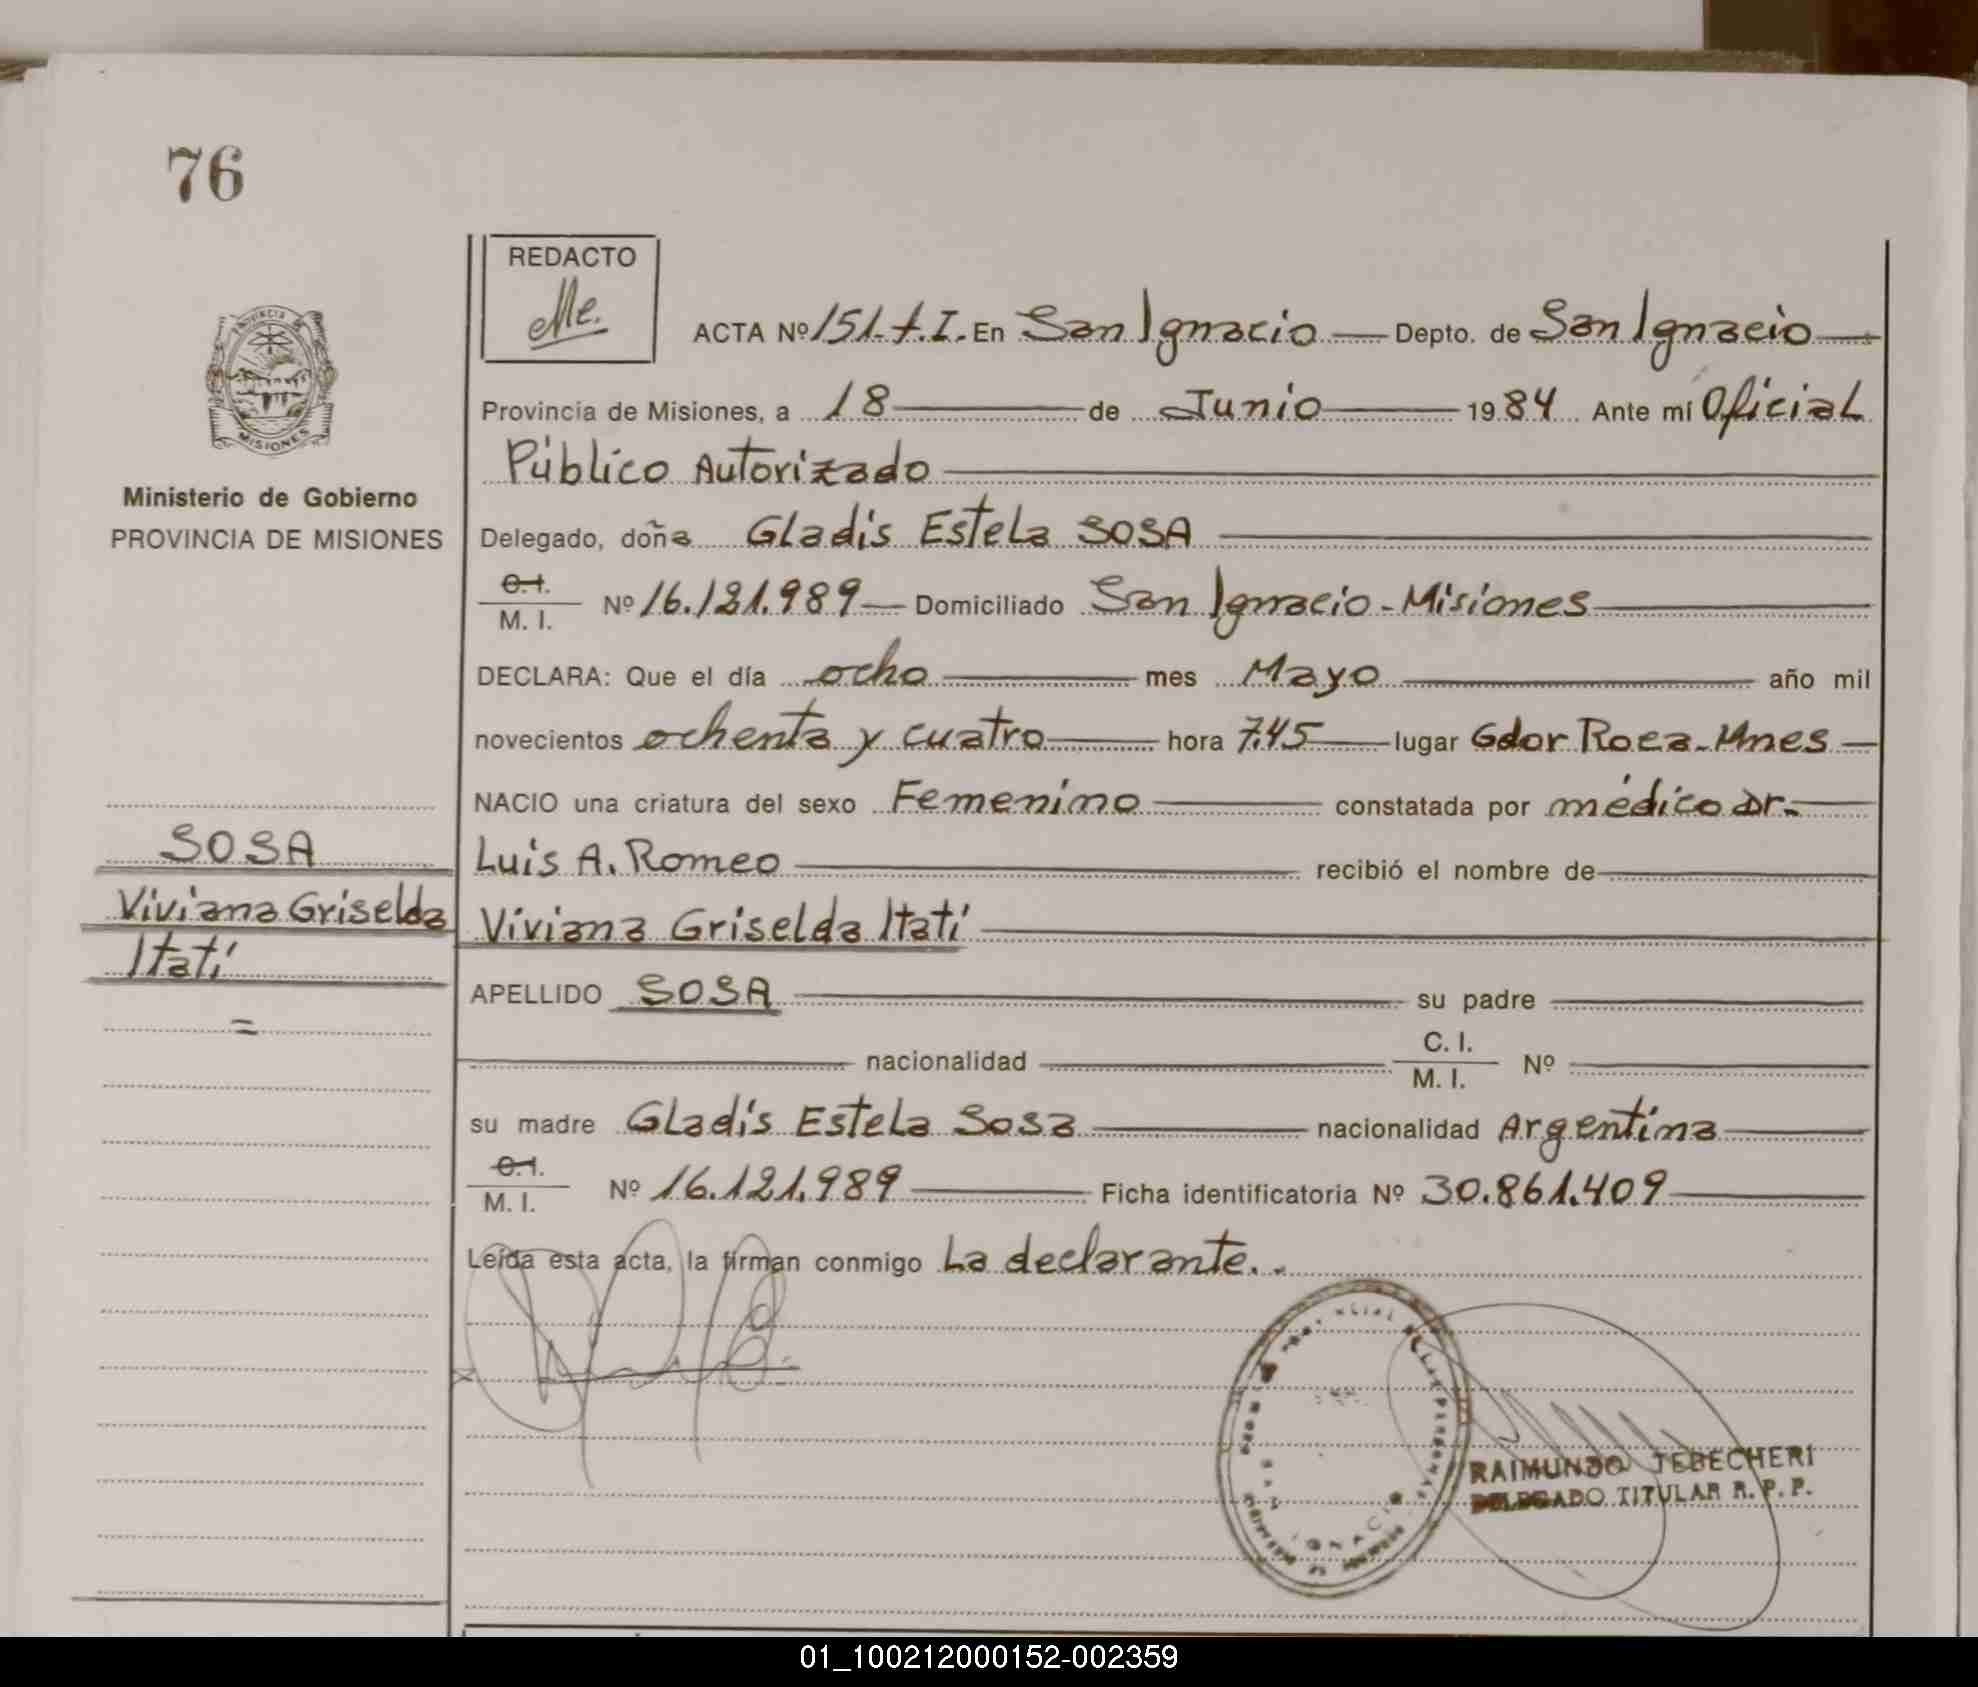 76
REDACTO
Me.
PROVINCIA DE
MISIONES
Ministerio de Gobierno
PROVINCIA DE MISIONES
SOSA
Viviana Griselda
Itatí
=
ACTA Nº 151-t.I. En San Ignacio — Depto. de San Ignacio —
Provincia de Misiones, a 18 — de Junio — 1984 Ante mí Oficial
Público Autorizado —
Delegado, doña Gladis Estela SOSA —
C.I.
M. I. Nº 16.121.989 — Domiciliado San Ignacio - Misiones —
DECLARA: Que el día ocho — mes Mayo — año mil
novecientos ochenta y cuatro — hora 7.45 — lugar Gdor Roca - Mnes —
NACIO una criatura del sexo Femenino — constatada por médico Dr. —
Luis A. Romeo — recibió el nombre de —
Viviana Griselda Itatí —
APELLIDO SOSA — su padre —
— nacionalidad — C. I.
M. I. Nº —
su madre Gladis Estela Sosa — nacionalidad Argentina —
C.I.
M. I. Nº 16.121.989 — Ficha identificatoria Nº 30.861.409 —
Leída esta acta, la firman conmigo La declarante. -
SAN IGNACIO
RAIMUNDO TEBECHERI
DELEGADO TITULAR R. P. P.
01_100212000152-002359